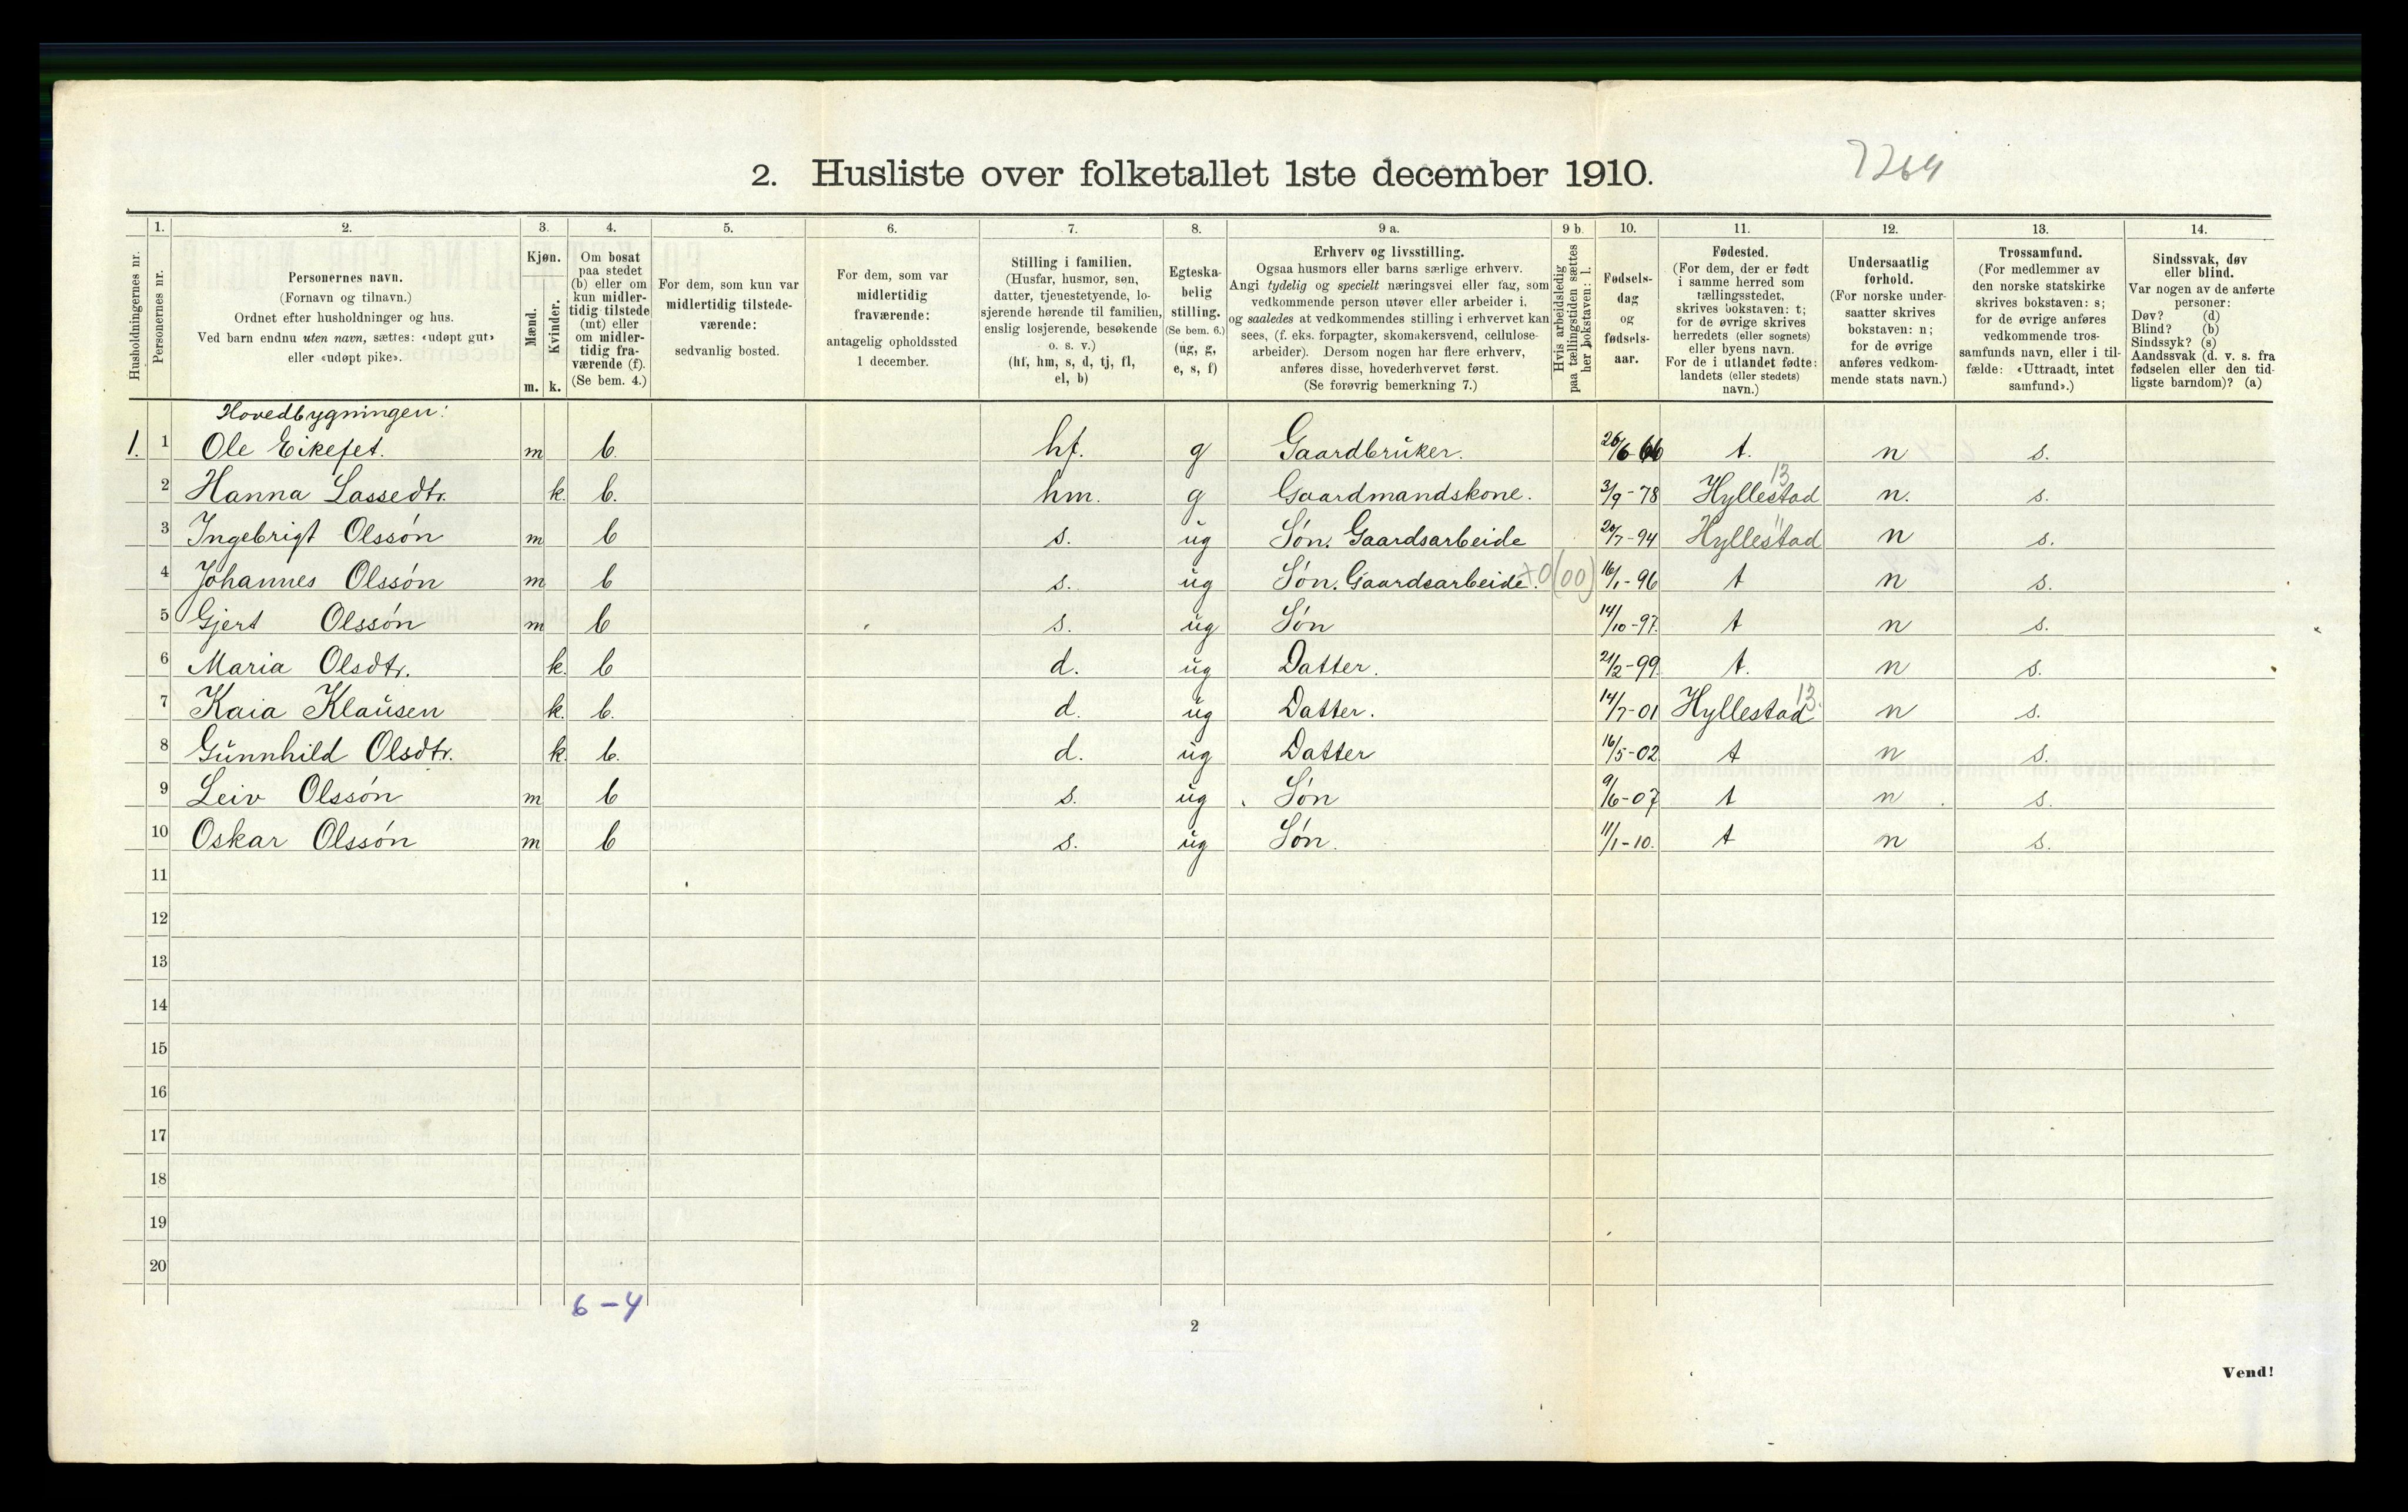 2. Husliste over folketallet 1ste december 1910.
7264
Husholdningernes nr.
1.
Personernes nr.
2.
Personernes navn.
(Fornavn og tilnavn.)
Ordnet efter husholdninger og hus.
Ved barn endnu uten navn, sættes: «udøpt gut»
eller «udøpt pike».
3.
Kjøn.
Mænd.
Kvinder.
m. k.
4.
Om bosat
paa stedet
(b) eller om
kun midler-
tidig tilstede
(mt) eller
om midler-
tidig fra-
værende (f).
(Se bem. 4.)
5.
For dem, som kun var
midlertidig tilstede-
værende:
sedvanlig bosted.
6.
For dem, som var
midlertidig
fraværende:
antagelig opholdssted
1 december.
7.
Stilling i familien.
(Husfar, husmor, søn,
datter, tjenestetyende, lo-
sjerende hørende til familien,
enslig losjerende, besøkende
o. s. v.)
(hf, hm, s, d, tj, fl,
el, b)
8.
Egteska-
belig
stilling.
(Se bem. 6.)
(ug, g,
e, s, f)
9 a.
Erhverv og livsstilling.
Ogsaa husmors eller barns særlige erhverv.
Angi tydelig og specielt næringsvei eller fag, som
vedkommende person utøver eller arbeider i,
og saaledes at vedkommendes stilling i erhvervet kan
sees, (f. eks. forpagter, skomakersvend, cellulose-
arbeider). Dersom nogen har flere erhverv,
anføres disse, hovederhvervet først.
(Se forøvrig bemerkning 7.)
9 b.
Hvis arbeidsledig
paa tællingstiden sættes
her bokstaven: l.
10.
Fødsels-
dag
og
fødsels-
aar.
11.
Fødested.
(For dem, der er født
i samme herred som
tællingsstedet,
skrives bokstaven: t;
for de øvrige skrives
herredets (eller sognets)
eller byens navn.
For de i utlandet fødte:
landets (eller stedets)
navn.)
12.
Undersaatlig
forhold.
(For norske under-
saatter skrives
bokstaven: n;
for de øvrige
anføres vedkom-
mende stats navn.)
13.
Trossamfund.
(For medlemmer av
den norske statskirke
skrives bokstaven: s;
for de øvrige anføres
vedkommende tros-
samfunds navn, eller i til-
fælde: «Uttraadt, intet
samfund».)
14.
Sindssvak, døv
eller blind.
Var nogen av de anførte
personer:
Døv? (d)
Blind? (b)
Sindssyk? (s)
Aandssvak (d. v. s. fra
fødselen eller den tid-
ligste barndom)? (a)
Hovedbygningen:
1. 1 Ole Eikefet. m b. hf. g Gaardbruker. 26/6-66 t. n s.
2 Hanna Lassedtr. k. b. hm. g Gaardmandskone. 3/9-78 Hyllestad 13 n. s.
3 Ingebrigt Olssøn m b s. ug Søn. Gaardsarbeide 20/7-94 Hyllestad " n s.
4 Johannes Olssøn m b s. ug Søn. Gaardsarbeide. +0(00) 16/1-96 t n s.
5 Gjert Olssøn m b s. ug Søn 14/10-97. t n s.
6 Maria Olsdtr. k. b d. ug Datter. 21/2-99. t. n s.
7 Kaia Klausen k. b. d. ug Datter. 14/7-01 Hyllestad 13 n s.
8 Gunnhild Olsdtr. k. b. d. ug Datter 16/5-02 t n s.
9 Leiv Olssøn m b s. ug Søn 9/6-07 t n s.
10 Oskar Olssøn m b s. ug Søn. 11/1-10. t n s.
11
12
13
14
15
16
17
18
19
20
6-4
2
Vend!